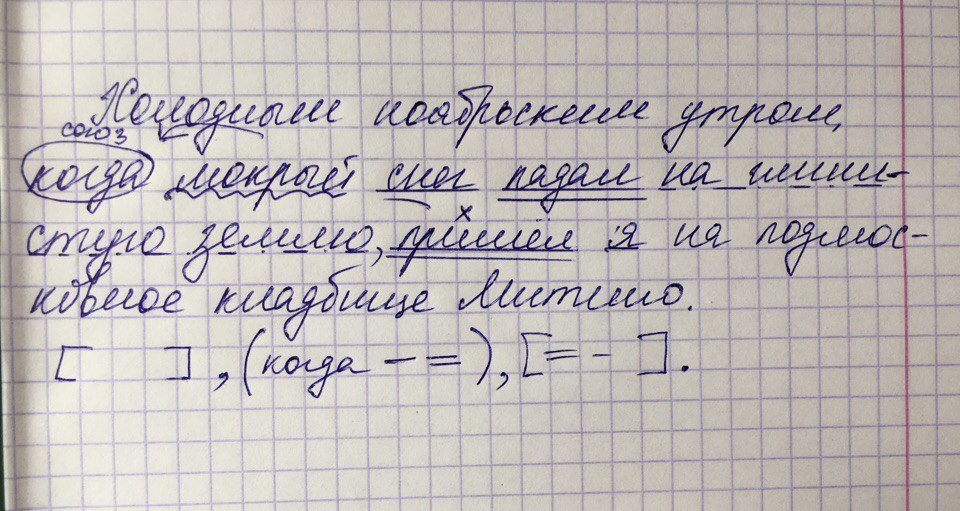 Холодным ноябрьским утром,
союз
когда мокрый снег падал на глини-
стую землю, х
пришёл я на подмос-
ковное кладбище Митино.
[ ], (когда — =), [= - ].